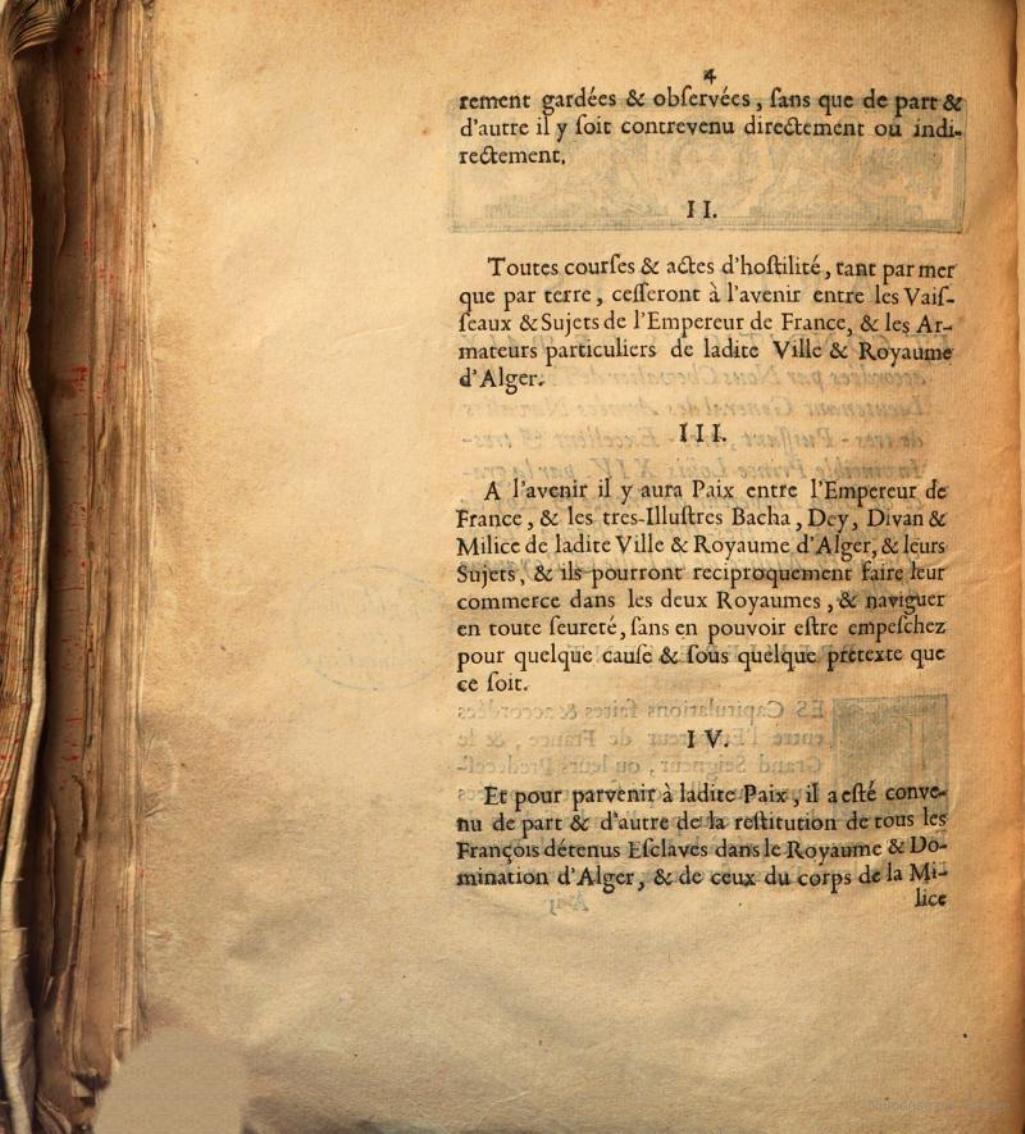 4
rement gardées & obſervées, ſans que de part &
d'autre il y ſoit contrevenu directement ou indi-
rectement.
II.
Toutes courſes & actes d'hoſtilité, tant par mer
que par terre, ceſſeront à l'avenir entre les Vaiſ-
ſeaux & Sujets de l'Empereur de France, & les Ar-
mateurs particuliers de ladite Ville & Royaume
d'Alger.
III.
A l'avenir il y aura Paix entre l'Empereur de
France, & les tres-Illuſtres Bacha, Dey, Divan &
Milice de ladite Ville & Royaume d'Alger, & leurs
Sujets, & ils pourront reciproquement faire leur
commerce dans les deux Royaumes, & naviguer
en toute ſeureté, ſans en pouvoir eſtre empeſchez
pour quelque cauſe & ſous quelque pretexte que
ce ſoit.
IV.
Et pour parvenir à ladite Paix, il a eſté conve-
nu de part & d'autre de la reſtitution de tous les
François détenus Eſclaves dans le Royaume & Do-
mination d'Alger, & de ceux du corps de la Mi-
lice